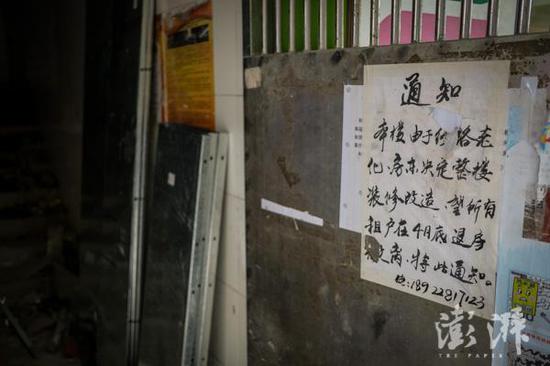 通知
本楼由于线路老
化,房东决定整楼
装修改造,望所有
租户在4月底退房
离,特此通知。
电:18922817123
澎湃
THE PAPER